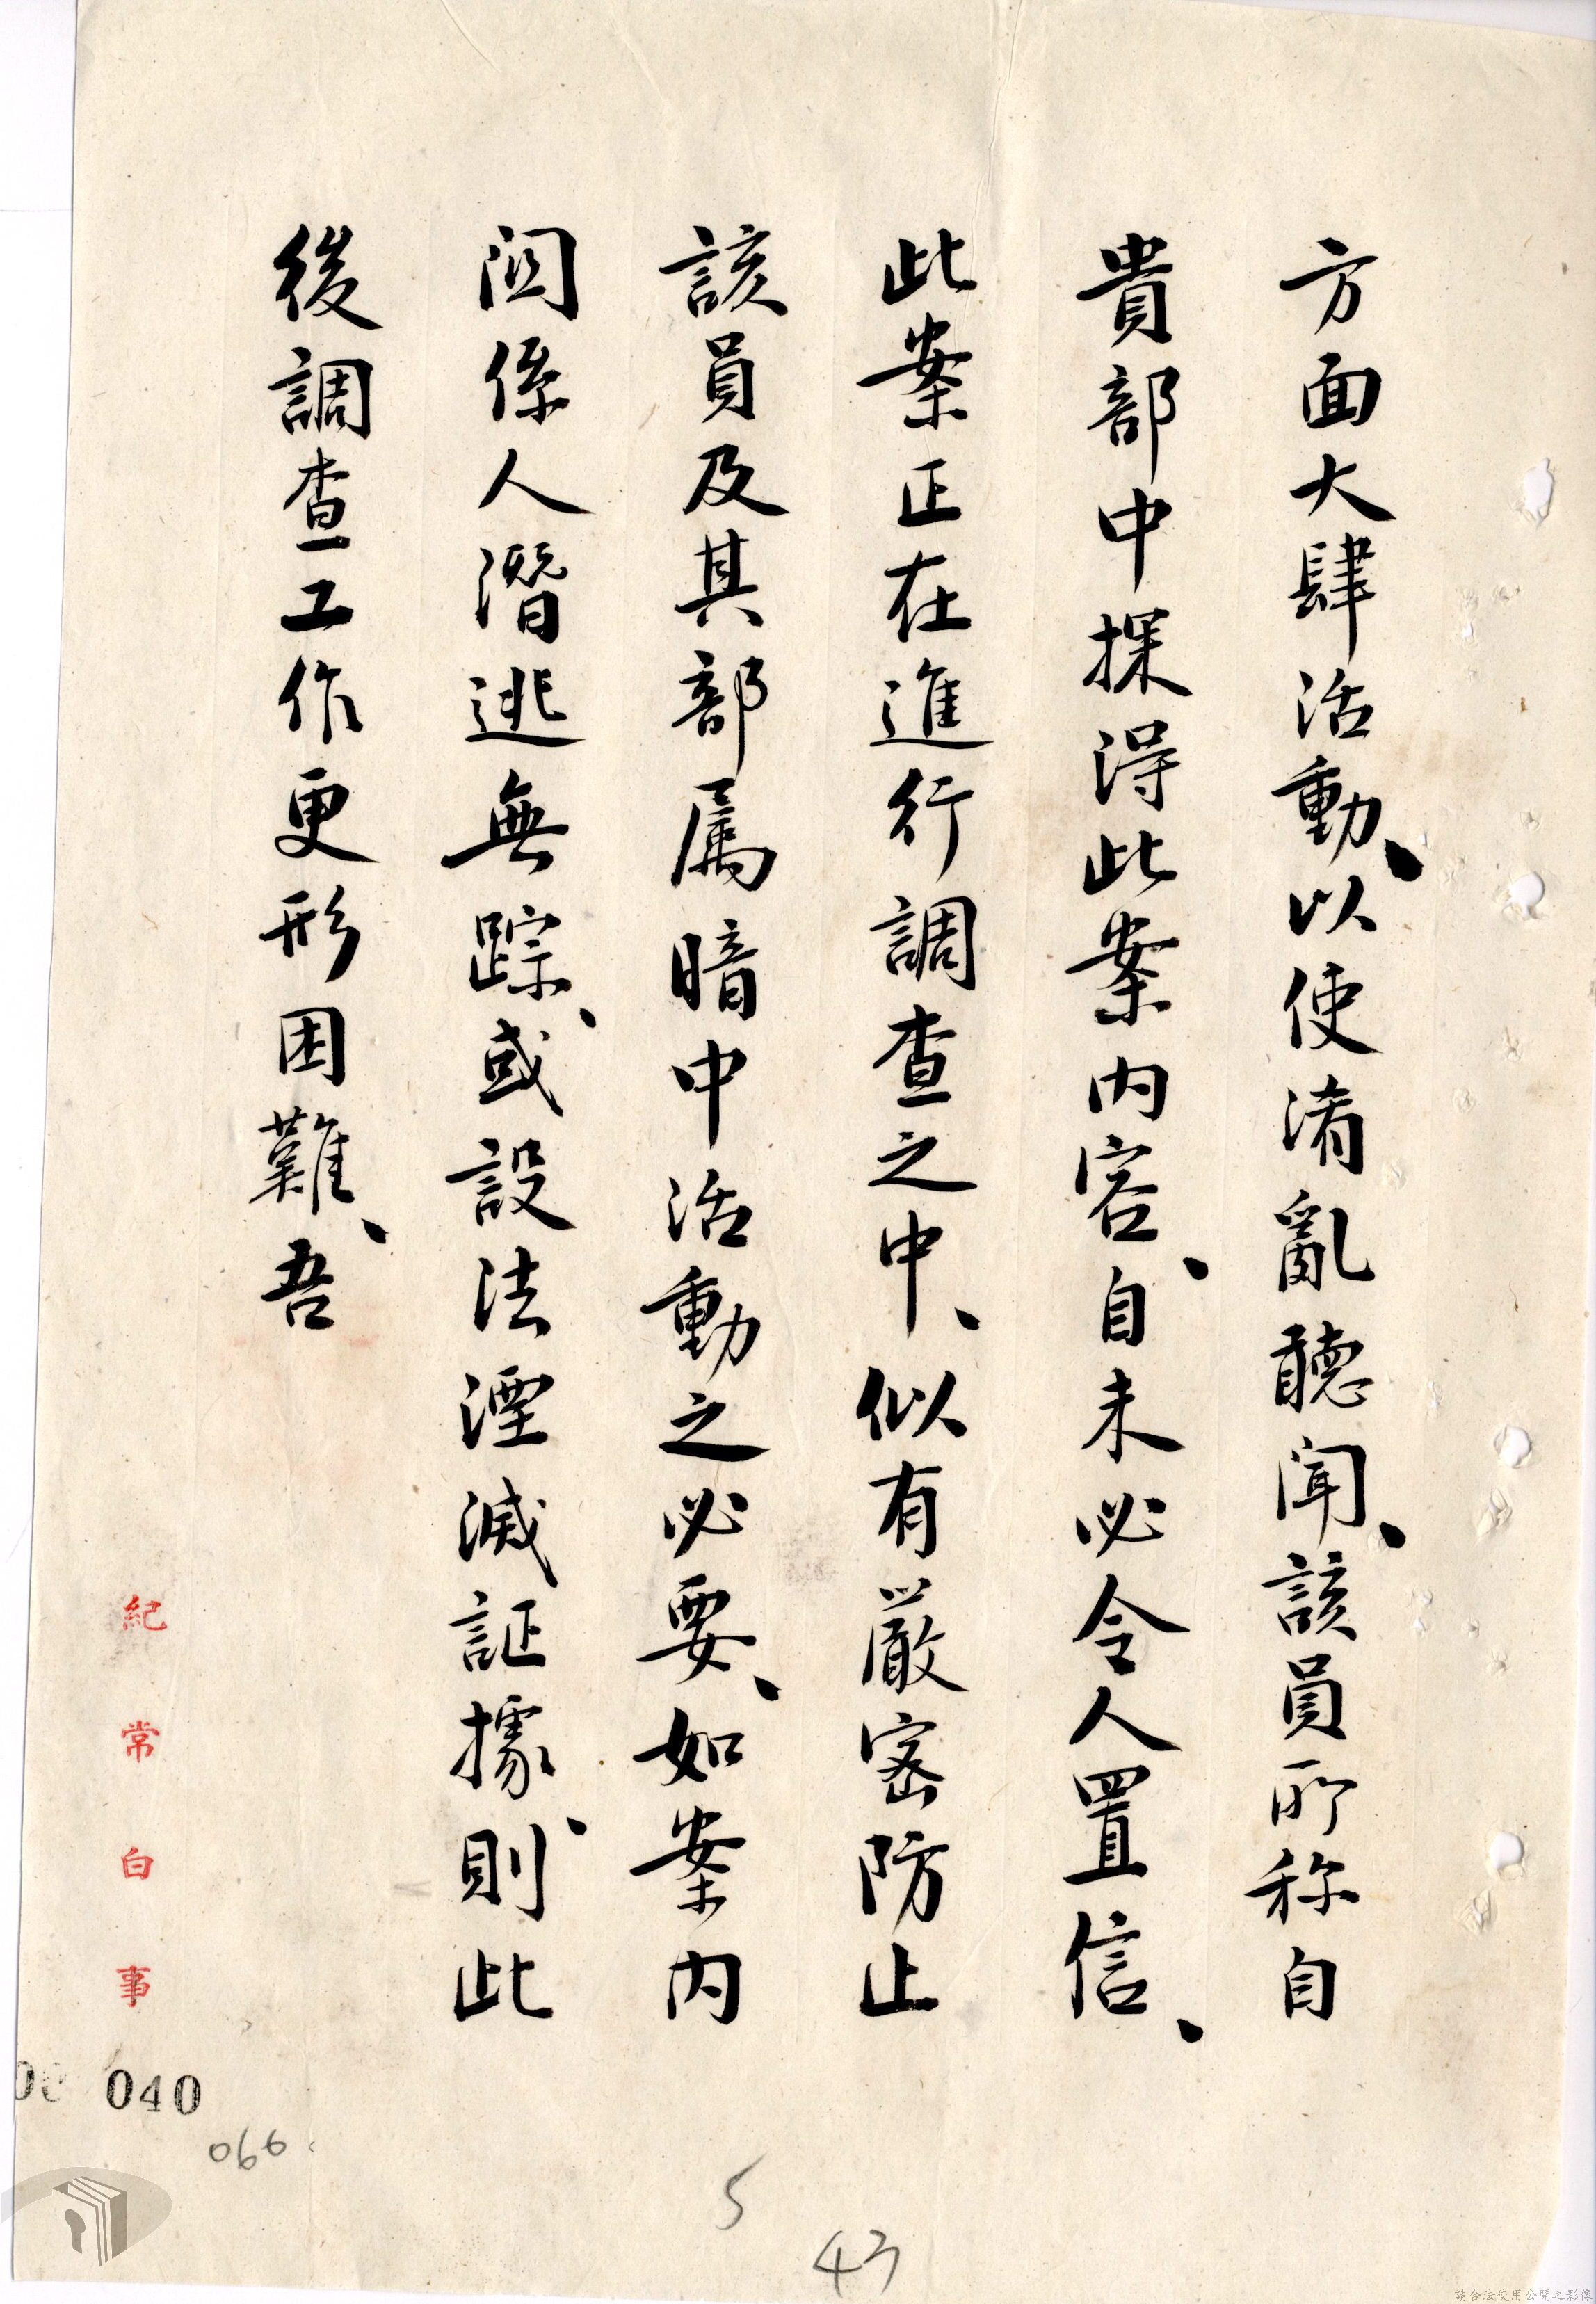 方面大肆活動、以使淆亂聽聞、該員所称自
貴部中探得此案内容、自未必令人置信、
此案正在進行調查之中、似有嚴密防止
該員及其部属暗中活動之必要、如案内
関係人潛逃無踪、或設法湮滅証據、則此
後調查工作更形困難、吾
紀常白事
040
066
5
43
請合法使用公開之影像